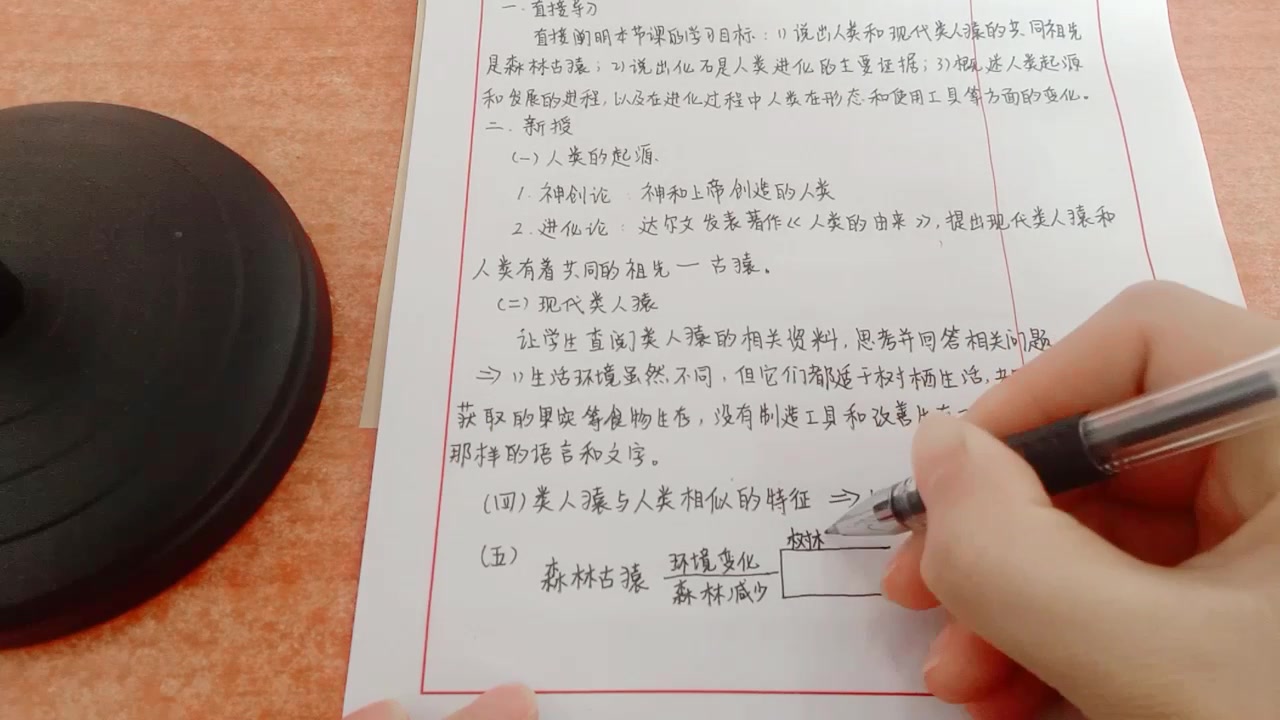 一.直接导习
直接阐明本节课的学习目标：1)说出人类和现代类人猿的共同祖先
是森林古猿；2)说出化石是人类进化的主要证据；3)概述人类起源
和发展的进程，以及在进化过程中人类在形态和使用工具等方面的变化。
二.新授
(一)人类的起源.
1.神创论：神和上帝创造的人类
2.进化论：达尔文发表著作《人类的由来》，提出现代类人猿和
人类有着共同的祖先一古猿。
(二)现代类人猿
让学生查阅类人猿的相关资料，思考并回答相关问题
⇒ 1)生活环境虽然不同，但它们都适于树栖生活，
获取的果实等食物生存，没有制造工具和改善生存
那样的语言和文字。
(四)类人猿与人类相似的特征 ⇒
(五)
树林
森林古猿 环境变化
森林减少